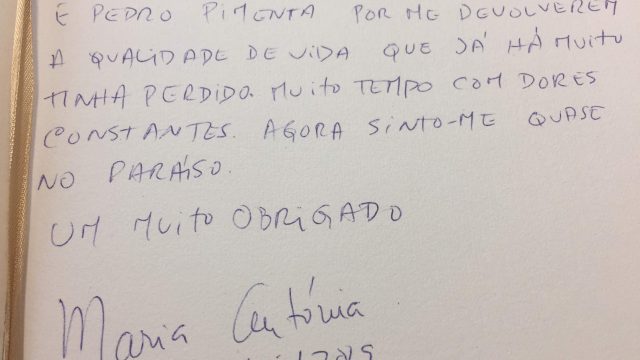 E PEDRO PIMENTA POR ME DEVOLVEREM
A QUALIDADE DE VIDA QUE JÁ HÁ MUITO
TINHA PERDIDO. MUITO TEMPO COM DORES
CONSTANTES. AGORA SINTO-ME QUASE
NO PARAÍSO.
UM MUITO OBRIGADO
Maria Antónia